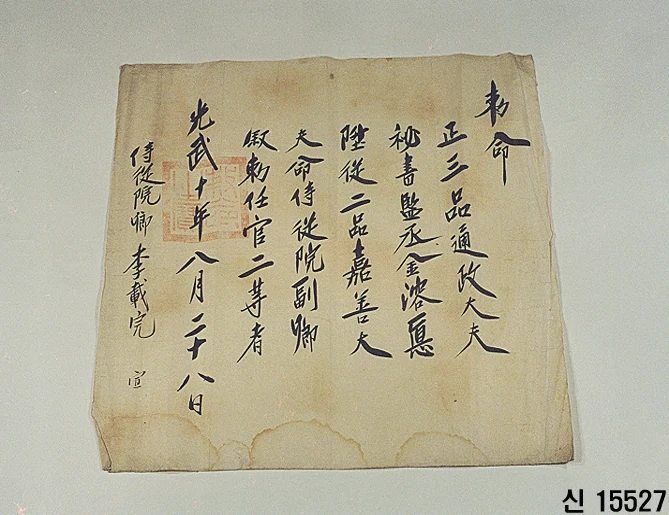 勅命
正三品通政大夫
秘書監丞金溶悳
陞從二品嘉善大
夫命侍從院副卿
叙勅任官二等者
光武十年八月二十八日
侍從院卿 李載完 宣
신 15527